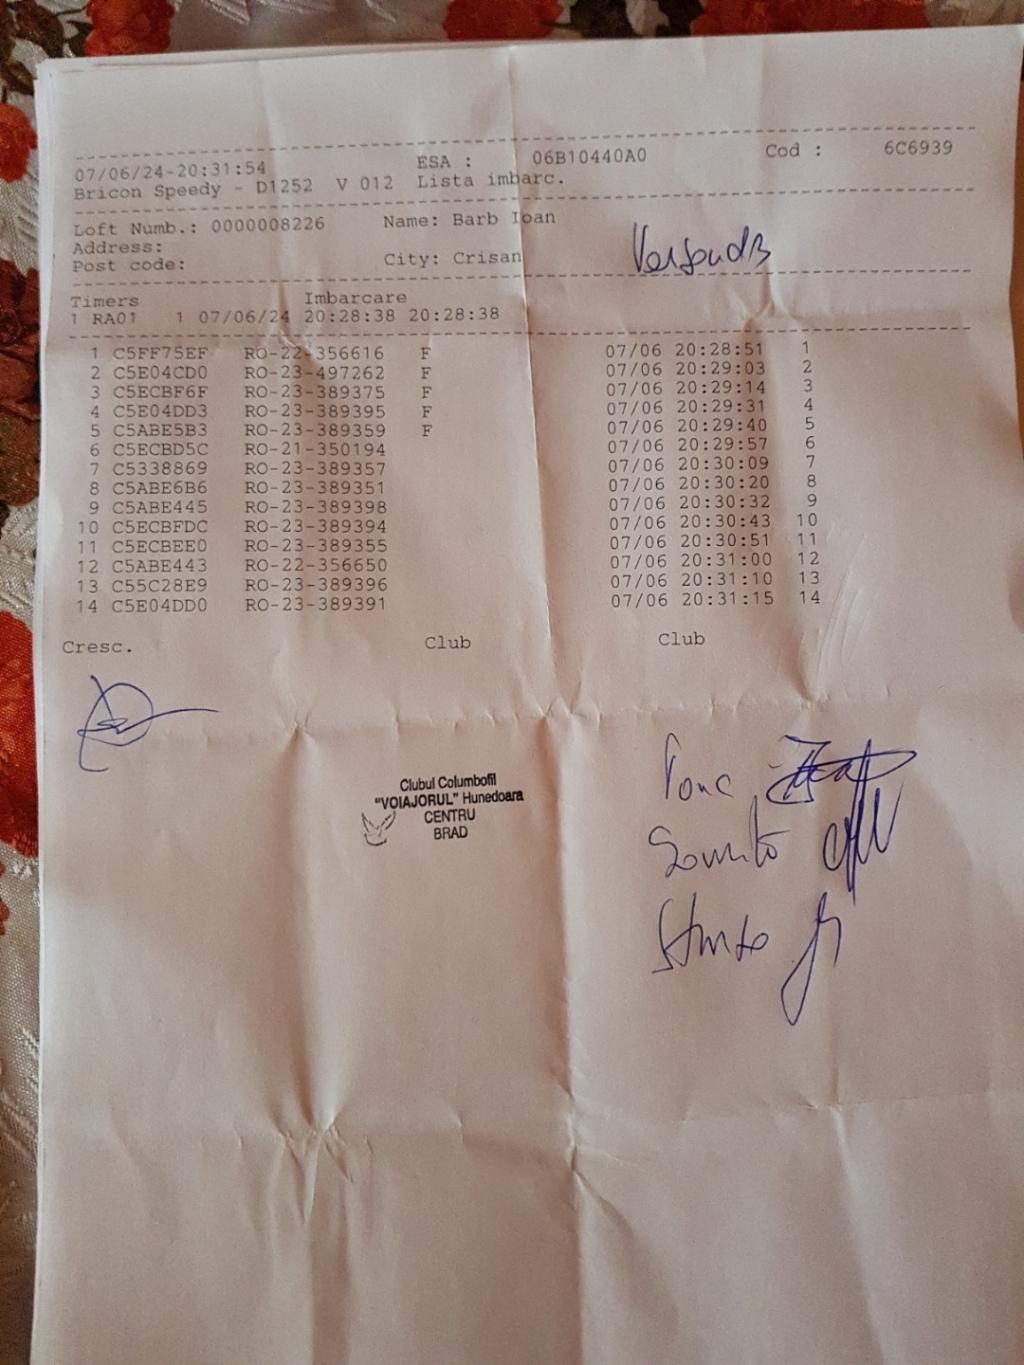 07/06/24-20:31:54 ESA : 06B10440A0 Cod : 6C6939
Bricon Speedy - D1252 V 012 Lista imbarc.
Loft Numb.: 0000008226 Name: Barb Ioan
Address:
Post code: City: Crisan
Timers Imbarcare
1 RA01 1 07/06/24 20:28:38 20:28:38
1 C5FF75EF RO-22-356616 F 07/06 20:28:51 1
2 C5E04CD0 RO-23-497262 F 07/06 20:29:03 2
3 C5ECBF6F RO-23-389375 F 07/06 20:29:14 3
4 C5E04DD3 RO-23-389395 F 07/06 20:29:31 4
5 C5ABE5B3 RO-23-389359 F 07/06 20:29:40 5
6 C5ECBD5C RO-21-350194 07/06 20:29:57 6
7 C5338869 RO-23-389357 07/06 20:30:09 7
8 C5ABE6B6 RO-23-389351 07/06 20:30:20 8
9 C5ABE445 RO-23-389398 07/06 20:30:32 9
10 C5ECBFDC RO-23-389394 07/06 20:30:43 10
11 C5ECBEE0 RO-23-389355 07/06 20:30:51 11
12 C5ABE443 RO-22-356650 07/06 20:31:00 12
13 C55C28E9 RO-23-389396 07/06 20:31:10 13
14 C5E04DD0 RO-23-389391 07/06 20:31:15 14
Cresc. Club Club
Clubul Columbofil
"VOIAJORUL" Hunedoara
CENTRU
BRAD